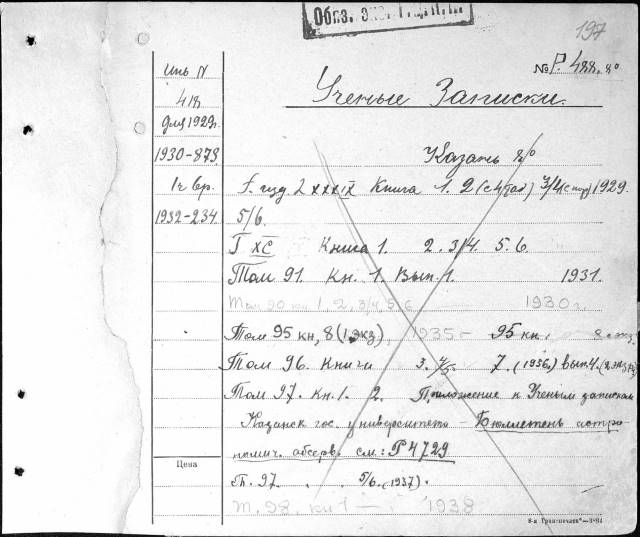 Обяз. экз. Г.Ц.К.П.
197
№ Р. 488. н°
Инв N
418
для 1929г.
1930-873.
1932-234.
Цена
Ученые Записки.
Казань
Г. год LXXXIX Книга 1. 2 3/4 1929.
5/6.
Т XC Книга 1. 2. 3/4. 5. 6.
Том 91. Кн. 1. Вып. 1. 1931.
Том 90 кн 1, 2, 3/4, 5, 6 1930 г.
Том 95 кн, 8 (1 экз), 1935 - 95 кн. 8 экз.
Том 96. Книги 3. 4/5. 7. (1936.) вып. 4.
Том 97. Кн. 1. 2. Приложение к Ученым запискам
Казанск гос. университета - Бюллетень астро-
номич. обсерв. см.: Р4729
Т. 97. 5/6. (1937).
Т. 98. кн 1 — 1938